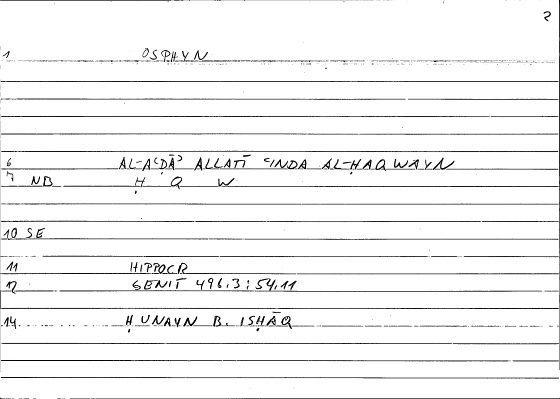 2
1 OSPHYN
6 AL-AʿḌĀʾ ALLATĪ ʿINDA AL-ḤAQWAYN
7 NB Ḥ Q W
10 SE
11 HIPPOCR
12 GENIT 496.3; 54.11
14 ḤUNAYN B. ISḤĀQ